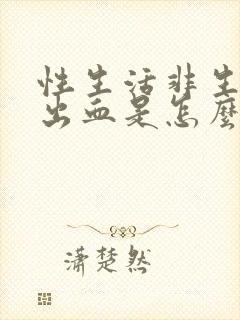 性生活非生
出血是怎麽
潇楚然